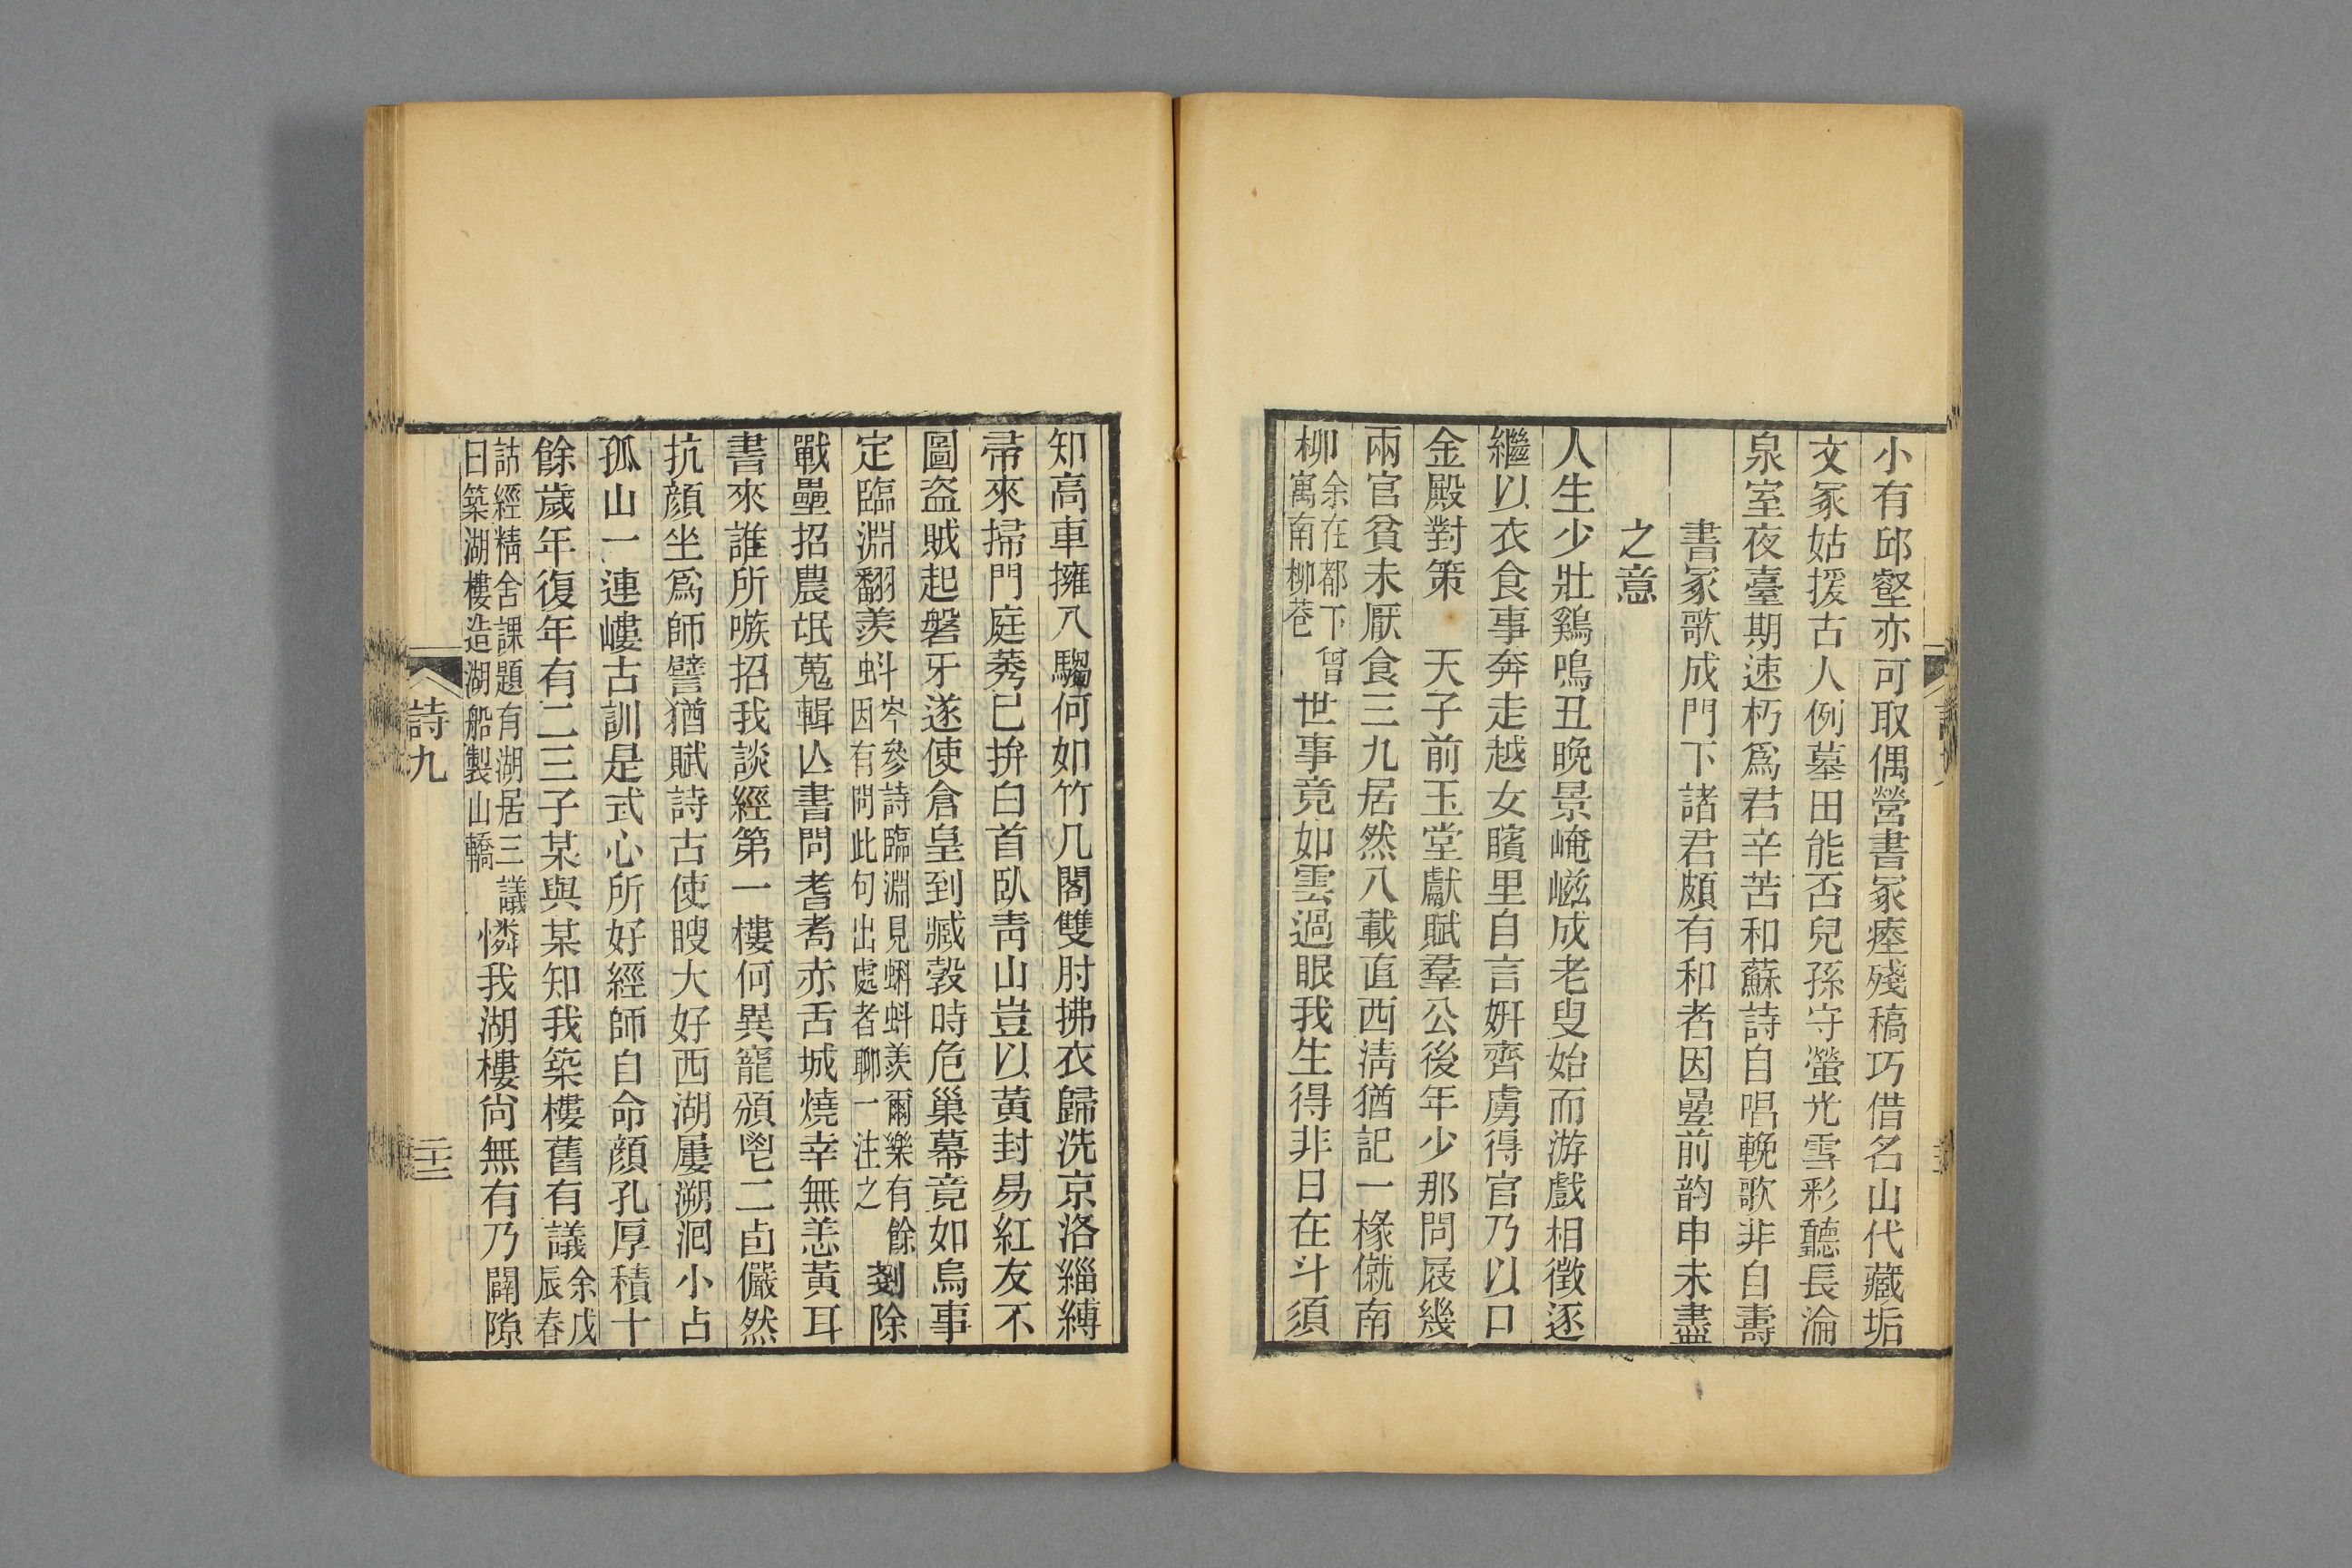 小有邱壑亦可取偶營書冢瘞殘稿巧借名山代藏垢
文冢姑援古人例墓田能否兒孫守螢光雪彩聽長淪
泉室夜臺期速朽爲君辛苦和蘇詩自唱輓歌非自壽
書冢歌成門下諸君頗有和者因疊前韵申未盡
之意
人生少壯鷄鳴丑晚景崦嵫成老叟始而游戲相徵逐
繼以衣食事奔走越女臏里自言姸齊虜得官乃以口
金殿對策　天子前玉堂獻賦羣公後年少那問屐幾
兩官貧未厭食三九居然八載直西淸猶記一椽僦南
柳余在都下曾寓南柳巷世事竟如雲過眼我生得非日在斗須
知高車擁八騶何如竹几閣雙肘拂衣歸洗京洛緇縛
帚來掃門庭莠已拚白首臥靑山豈以黃封易紅友不
圖盜賊起磐牙遂使倉皇到臧穀時危巢幕竟如烏事
定臨淵翻羨蚪岑參詩臨淵見蝌蚪羨爾樂有餘因有問此句出處者聊一注之剗除
戰壘招農氓蒐輯亾書問耆耇赤舌城燒幸無恙黃耳
書來誰所嗾招我談經第一樓何異寵頒鬯二卣儼然
抗顏坐爲師譬猶賦詩古使瞍大好西湖屢溯洄小占
孤山一連嶁古訓是式心所好經師自命顏孔厚積十
餘歲年復年有二三子某與某知我築樓舊有議余戊辰春
詁經精舍課題有湖居三議曰築湖樓造湖船製山轎憐我湖樓尙無有乃闢隙
詩九
二十三